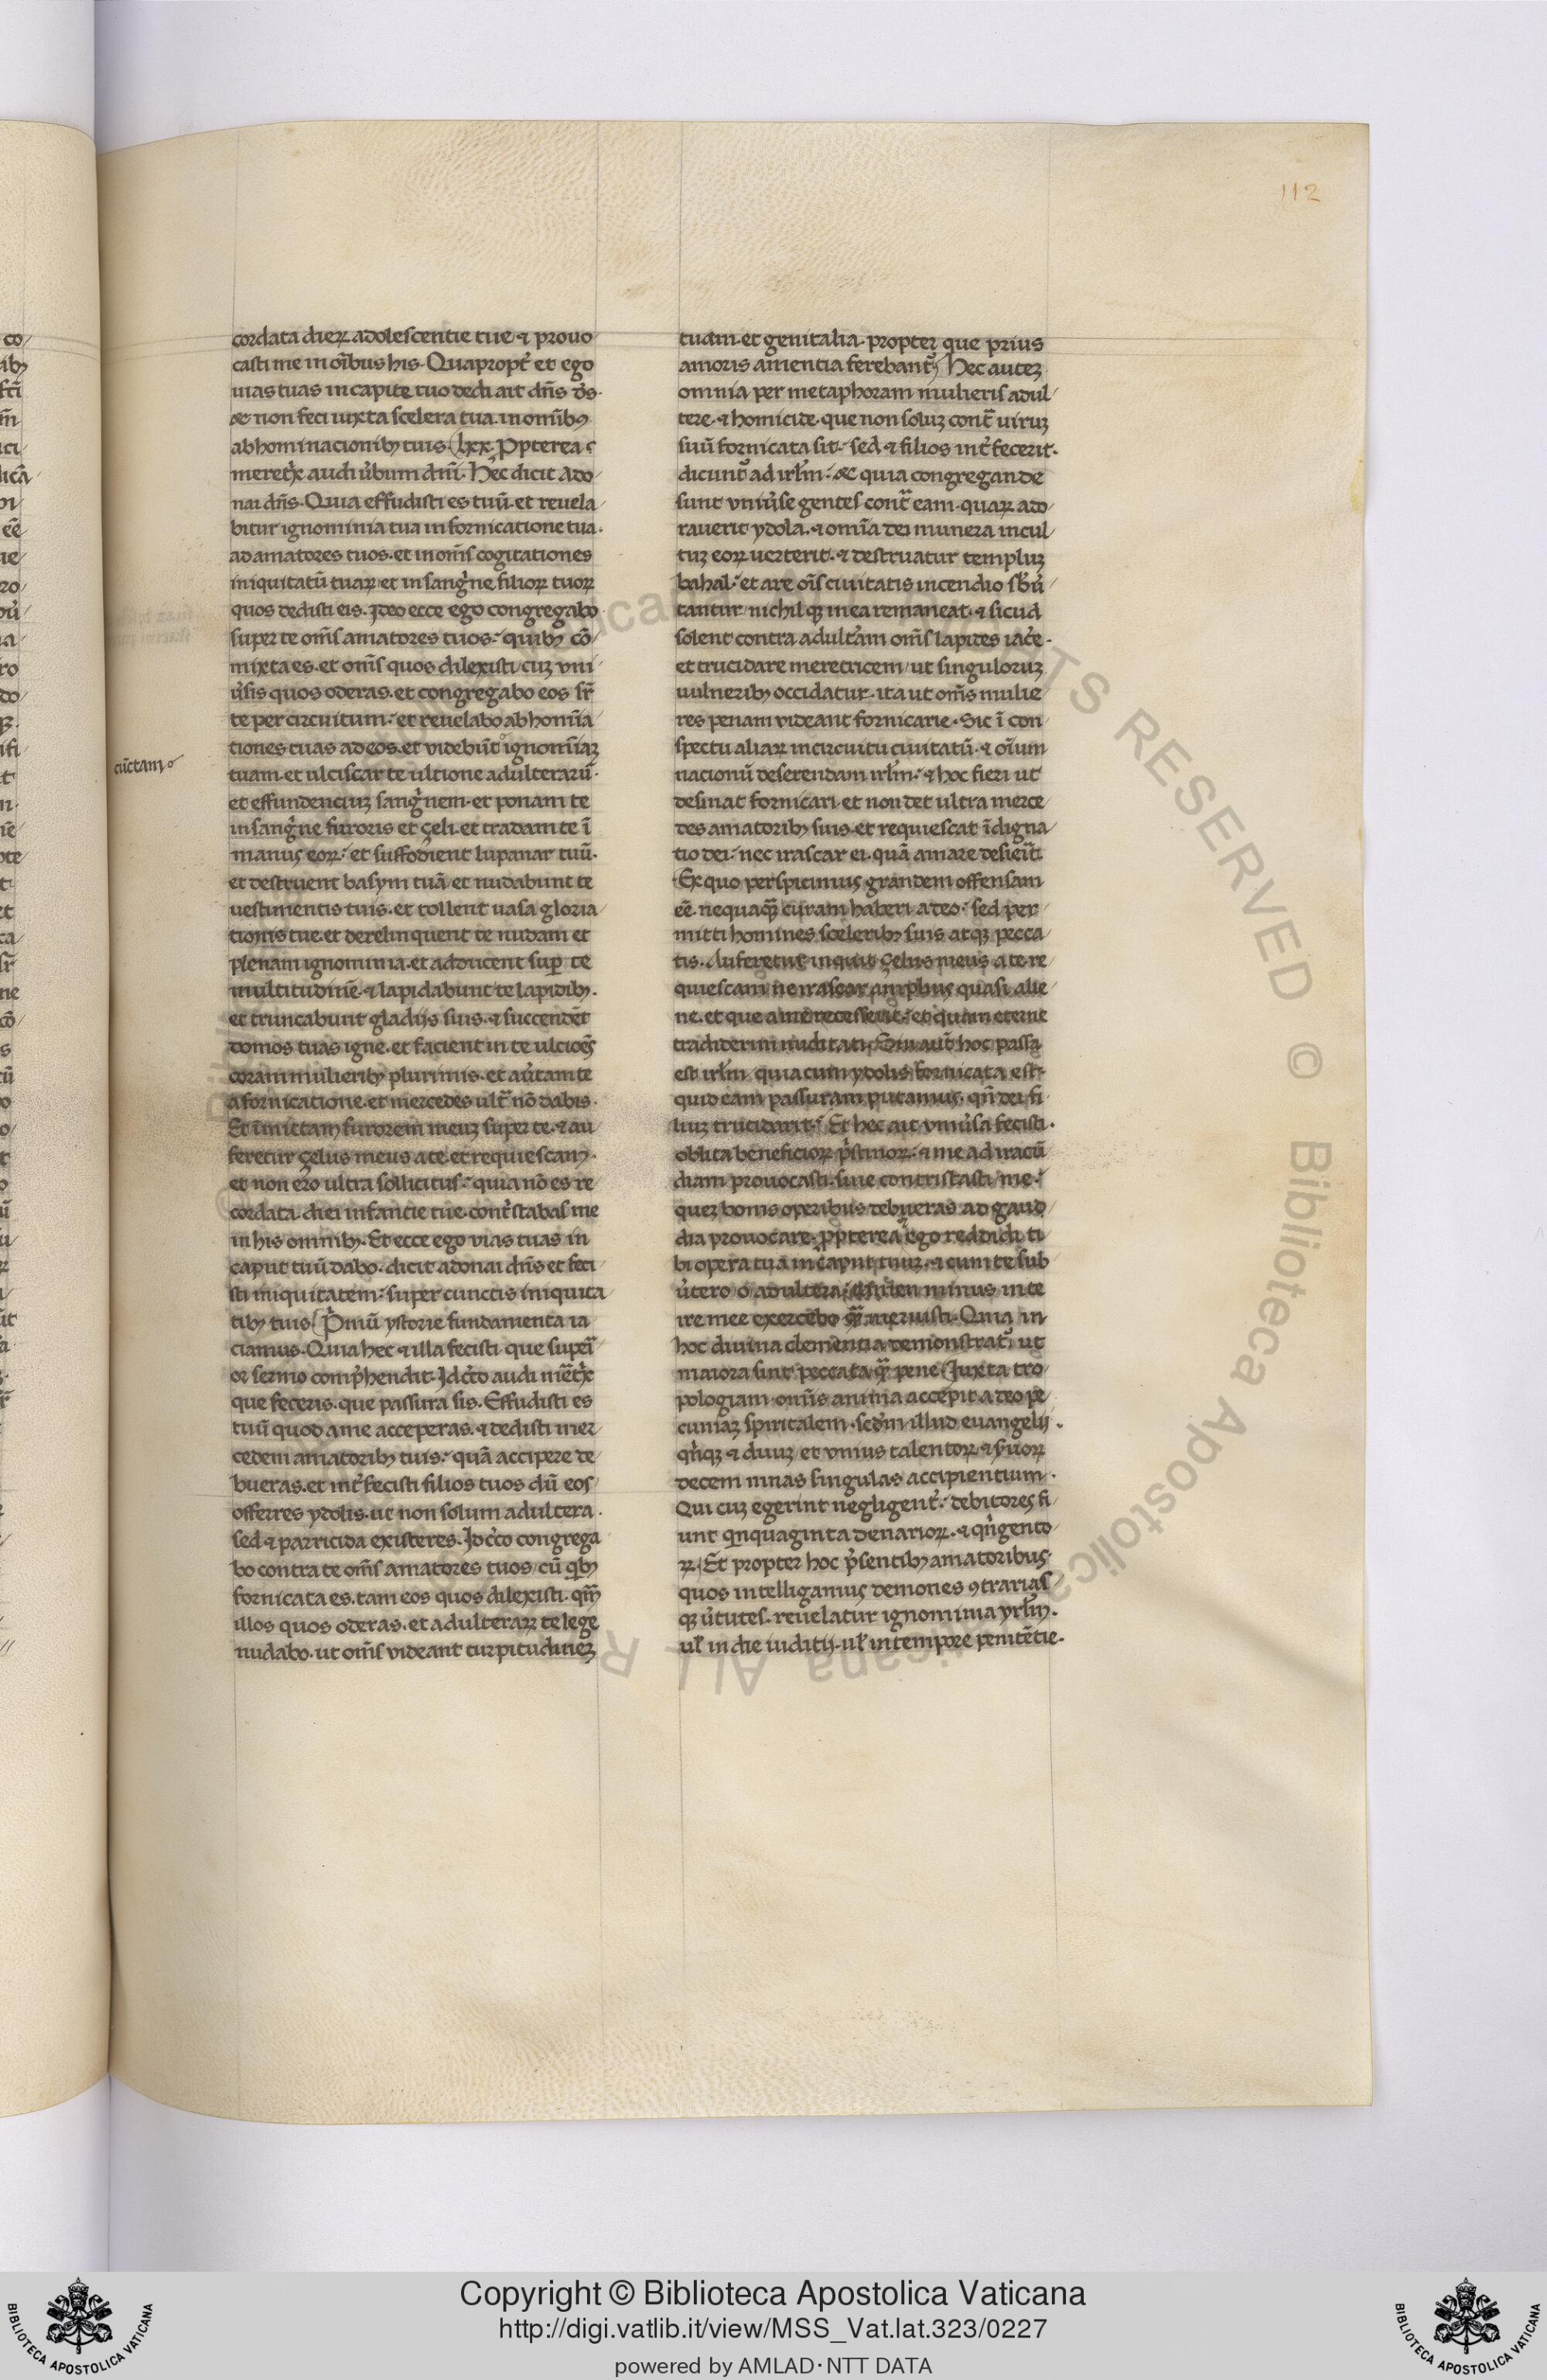 112
cordata dieꝝ adolescentie tue ⁊ prouo
casti me in oĩbus his. Quapropt̃ et ego
uias tuas in capite tuo dedi ait dñs ds̃.
& non feci iuxta scelera tua in omĩbꝰ
abhominacionibꝫ tuis lxx. Ppterea
meret̃x audi ũbum dñi. Hec dicit ado
nai dñs. Quia effudisti es tuũ. et reuela
bitur ignominia tua in fornicatione tua.
ad amatores tuos. et in om̃s cogitationes
iniquitatũ tuaꝝ et in sang̃ne filioꝝ tuoꝝ
quos dedisti eis. Ideo ecce ego congregabo
super te om̃s amatores tuos. quibꝫ cõ
mixta es. et om̃s quos dilexisti cuꝫ vni
ũsis quos oderas. et congregabo eos sr̃
te per circuitum. et reuelabo abhomĩa
tiones tuas ad eos. et videbũt ignomĩaꝫ
cũctam
tuam. et ulciscar te ultione adulterarũ.
et effundenciuꝫ sang̃nem. et ponam te
in sang̃ne furoris et çeli. et tradam te ĩ
manus eoꝝ. et suffodient lupanar tuũ.
et destruent basym tuã et nudabunt te
uestimentis tuis. et tollent uasa gloria
tionis tue. et derelinquent te nudam et
plenam ignominia. et adducent sup̃ te
multitudinẽ. ⁊ lapidabunt te lapidibꝫ.
et truncabunt gladijs suis. ⁊ succendẽt
domos tuas igne. et facient in te ulcioẽs
coram mulieribꝫ plurimis. et aũtam te
a fornicatione. et mercedes ult̃ nõ dabis.
Et ĩmittam furorem meuꝫ super te. ⁊ au
feretur çelus meus a te. et requiescam.
et non ero ultra sollicitus. quia nõ es re
cordata diei infantie tue. cont̃stabas me
in his omnibꝫ. Et ecce ego vias tuas in
caput tuũ dabo. dicit adonai dñs et feci
sti iniquitatem. super cunctis iniquita
tibꝫ tuis P̃mũ ystorie fundamenta ia
ciamus. Quia hec ⁊ illa fecisti que supeĩ
or sermo comp̃hendit. Idc̃o audi met̃x
que feceris. que passura sis. Effudisti es
tuũ quod a me acceperas. ⁊ dedisti mer
cedem amatoribꝫ tuis. quã accipere de
bueras. et int̃fecisti filios tuos dũ eos
offerres ydolis. ut non solum adultera.
sed ⁊ parricida existeres. Idc̃o congrega
bo contra te om̃s amatores tuos cũ q̃bꝫ
fornicata es. tam eos quos dilexisti. qm̃
illos quos oderas. et adulteraꝝ te lege
nudabo. ut om̃s videant turpitudineꝫ
tuam. et genitalia. propter que prius
amoris amentia ferebant̃. Hec auteꝫ
omnia per metaphoram mulieris adul
tere. ⁊ homicide. que non soluꝫ cont̃ uiruꝫ
suũ fornicata sit. sed ⁊ filios int̃fecerit.
dicunt̃ ad irl̃m. & quia congregande
sunt vniũse gentes cont̃ eam. quaꝝ ado
rauerit ydola. ⁊ omĩa dei munera in cul
tuꝫ eoꝝ uerterit. ⁊ destruatur templuꝫ
bahal. et are oĩs ciuitatis incendio sb̃ũ
tantur. nichil qꝫ in ea remaneat. ⁊ sicud
solent contra adult̃am om̃s lapides iac̃e.
et trucidare meretricem. ut singuloruꝫ
uulneribꝫ occidatur. ita ut om̃s mulie
res penam videant fornicarie. Sic ĩ con
spectu aliaꝝ in circuitu ciuitatũ. ⁊ oĩum
nacionũ deserendam irl̃m. ⁊ hoc fieri ut
desinat fornicari. et non det ultra merce
des amatoribꝫ suis. et requiescat ĩdigna
tio dei. nec irascar ei. quã amare desieĩt.
Ex quo perspicimus grandem offensam
eẽ. nequaq̃ curam haberi a deo. sed per
mitti homines sceleribꝫ suis atqꝫ pecca
tis. Auferetur inquit çelus meus a te. re
quiescam ne irascar amplius quasi alie
ne. et que a me recesserit. et quam eterne
tradiderim nuditati. Sin aut̃ hoc passa
est irl̃m quia cum ydolis fornicata est.
quid eam passuram putamus. qñ dei fi
liuꝫ trucidarit. Et hec ait vniũsa fecisti.
oblita beneficioꝝ p̃stinoꝝ. ⁊ me ad iracũ
diam prouocasti. siue contristasti me.
queꝫ bonis operibus debueras ad gaud
dia prouocare. ppterea ego reddidi ti
bi opera tua in caput tuuꝫ. ⁊ cum te sub
ũtero o adultera. minus in te
ire mee exercebo q̃ meruisti. Quia in
hoc diuina clementia demonstrat̃ ut
maiora sint peccata q̃ pene Iuxta tro
pologiam omĩs anima accepit a deo pe
cuniaꝫ spiritalem. scd̃m illud euangelij.
qñqꝫ ⁊ duuꝫ et vnius talentoꝝ ⁊ s̃uoꝝ
decem mnas singulas accipientium.
Qui cuꝫ egerint negligent̃. debitores fi
unt q̃nquaginta denarioꝝ. ⁊ qñgento
ꝝ. Et propter hoc p̃sentibꝫ amatoribus
quos intelligamus demones ꝯtrarias
qꝫ ũtutes. reuelatur ignominia yrl̃m.
ul̃ in die iuditij. ul̃ in tempore penitẽtie.
Copyright © Biblioteca Apostolica Vaticana
http://digi.vatlib.it/view/MSS_Vat.lat.323/0227
powered by AMLAD·NTT DATA
BIBLIOTECA APOSTOLICA VATICANA
BIBLIOTECA APOSTOLICA VATICANA